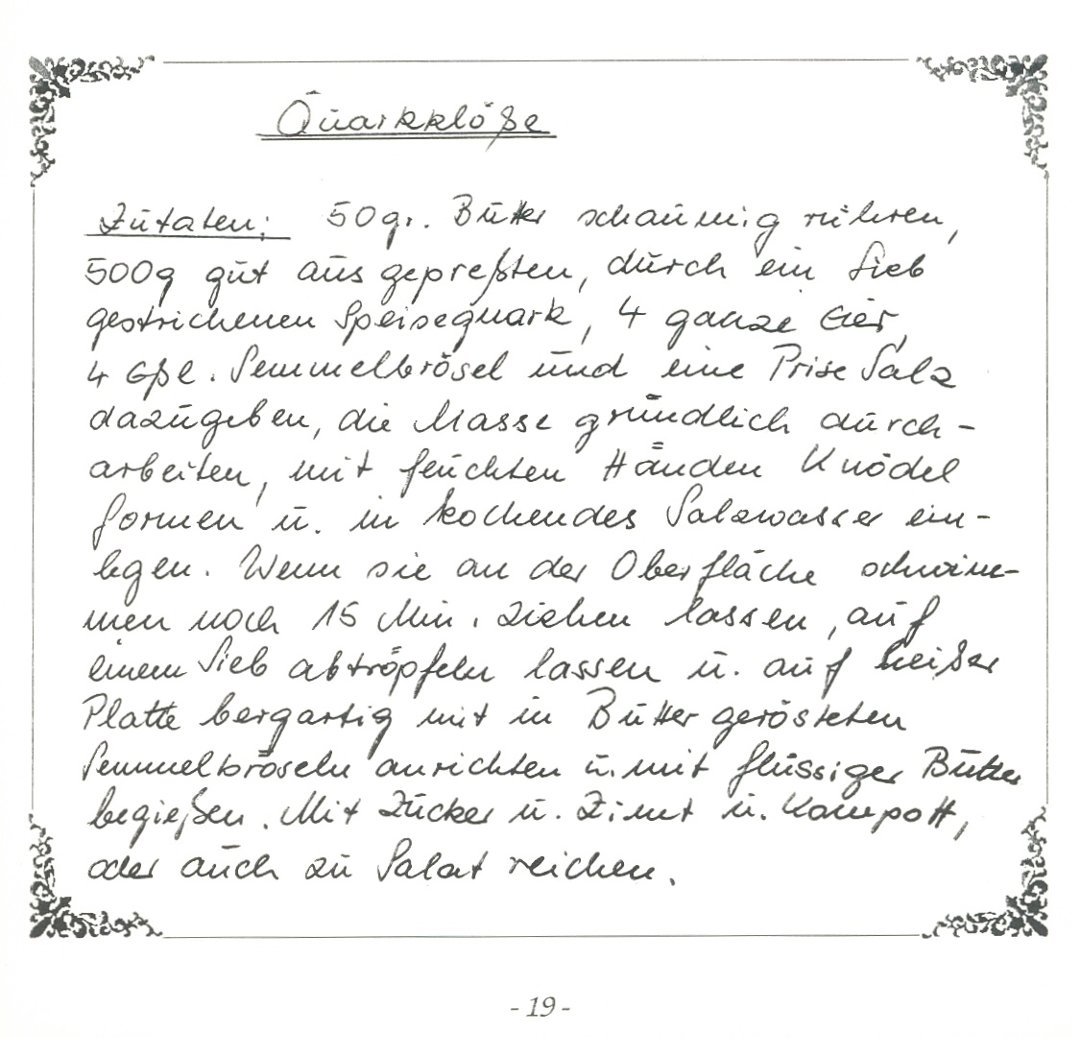 Quarkklöße
Zutaten: 50gr. Butter schaumig rühren,
500g gut ausgepreßten, durch ein Sieb
gestrichenen Speisequark, 4 ganze Eier,
4 Eßl. Semmelbrösel und eine Prise Salz
dazugeben, die Masse gründlich durch-
arbeiten, mit feuchten Händen Knödel
formen u. in kochendes Salzwasser ein-
legen. Wenn sie an der Oberfläche schwim-
men noch 15 Min. ziehen lassen, auf
einem Sieb abtröpfeln lassen u. auf heißer
Platte bergartig mit in Butter gerösteten
Semmelbröseln anrichten u. mit flüssiger Butter
begießen. Mit Zucker u. Zimt u. Kompott,
oder auch zu Salat reichen.
- 19 -